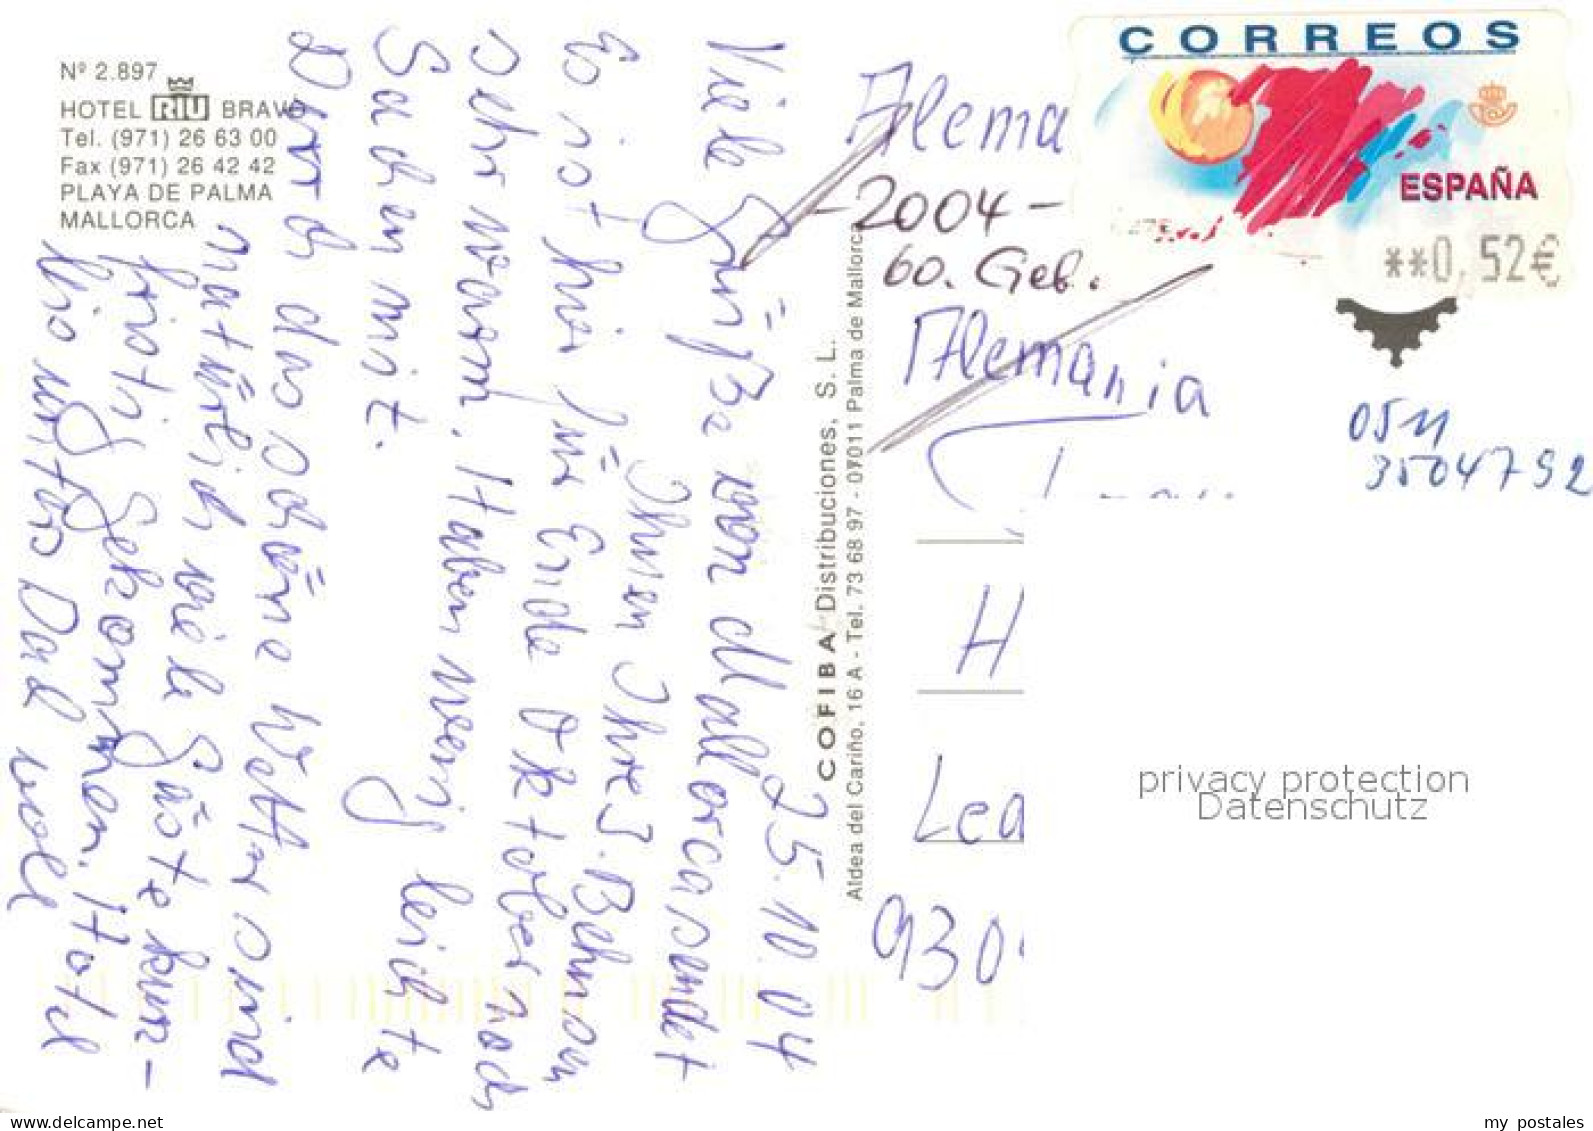 Nº 2.897
HOTEL RIU BRAVO
Tel. (971) 26 63 00
Fax (971) 26 42 42
PLAYA DE PALMA
MALLORCA
25.10.04
Viele Grüße von Mallorca sendet
Ihnen Ihre J. Behnsen
Es ist hier für Ende Oktober noch
sehr warm. Haben wenig leichte
Sachen mit.
Durch das schöne Wetter sind
natürlich viele Gäste kurz-
fristig gekommen. Hotel
bis unters Dach voll
COFIBA Distribuciones, S. L.
Aldea del Cariño, 16 A - Tel. 73 68 97 - 07011 Palma de Mallorca
CORREOS
ESPAÑA
**0,52€
Alema
-2004-
60. Geb.
Alemania
0511
3504792
H
Lea
930
privacy protection
Datenschutz
www.delcampe.net
my_postales